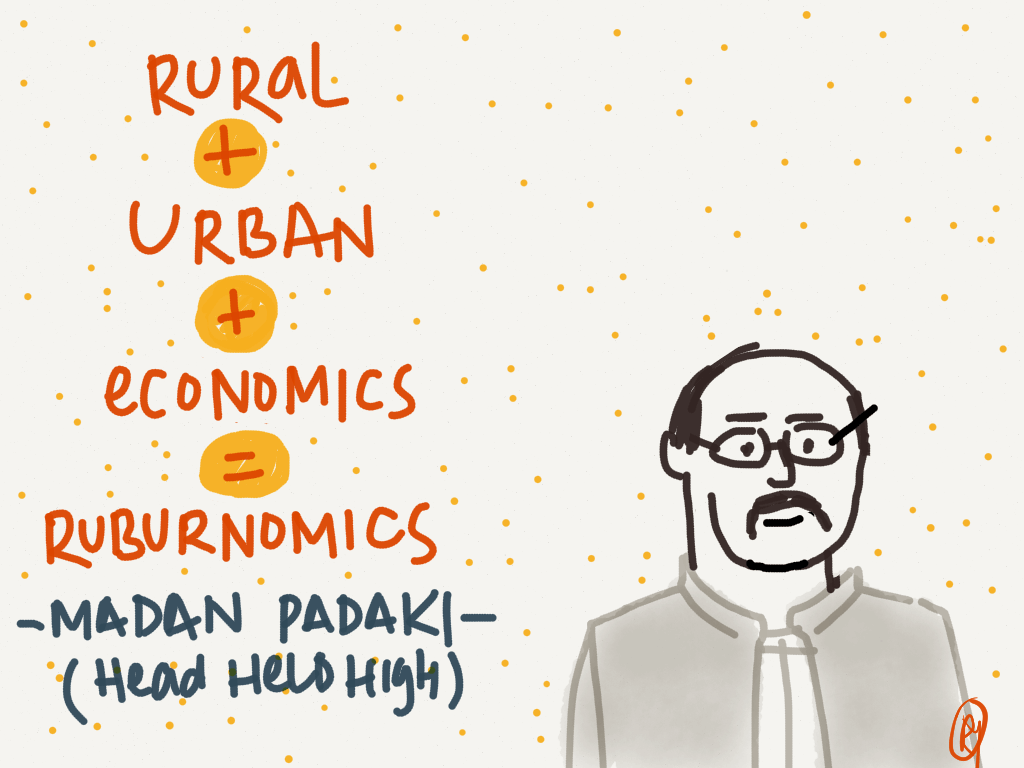 RURAL
+
URBAN
+
eCONOMICS
=
RUBURNOMICS
-MADAN PADAKI-
(Head Held High)